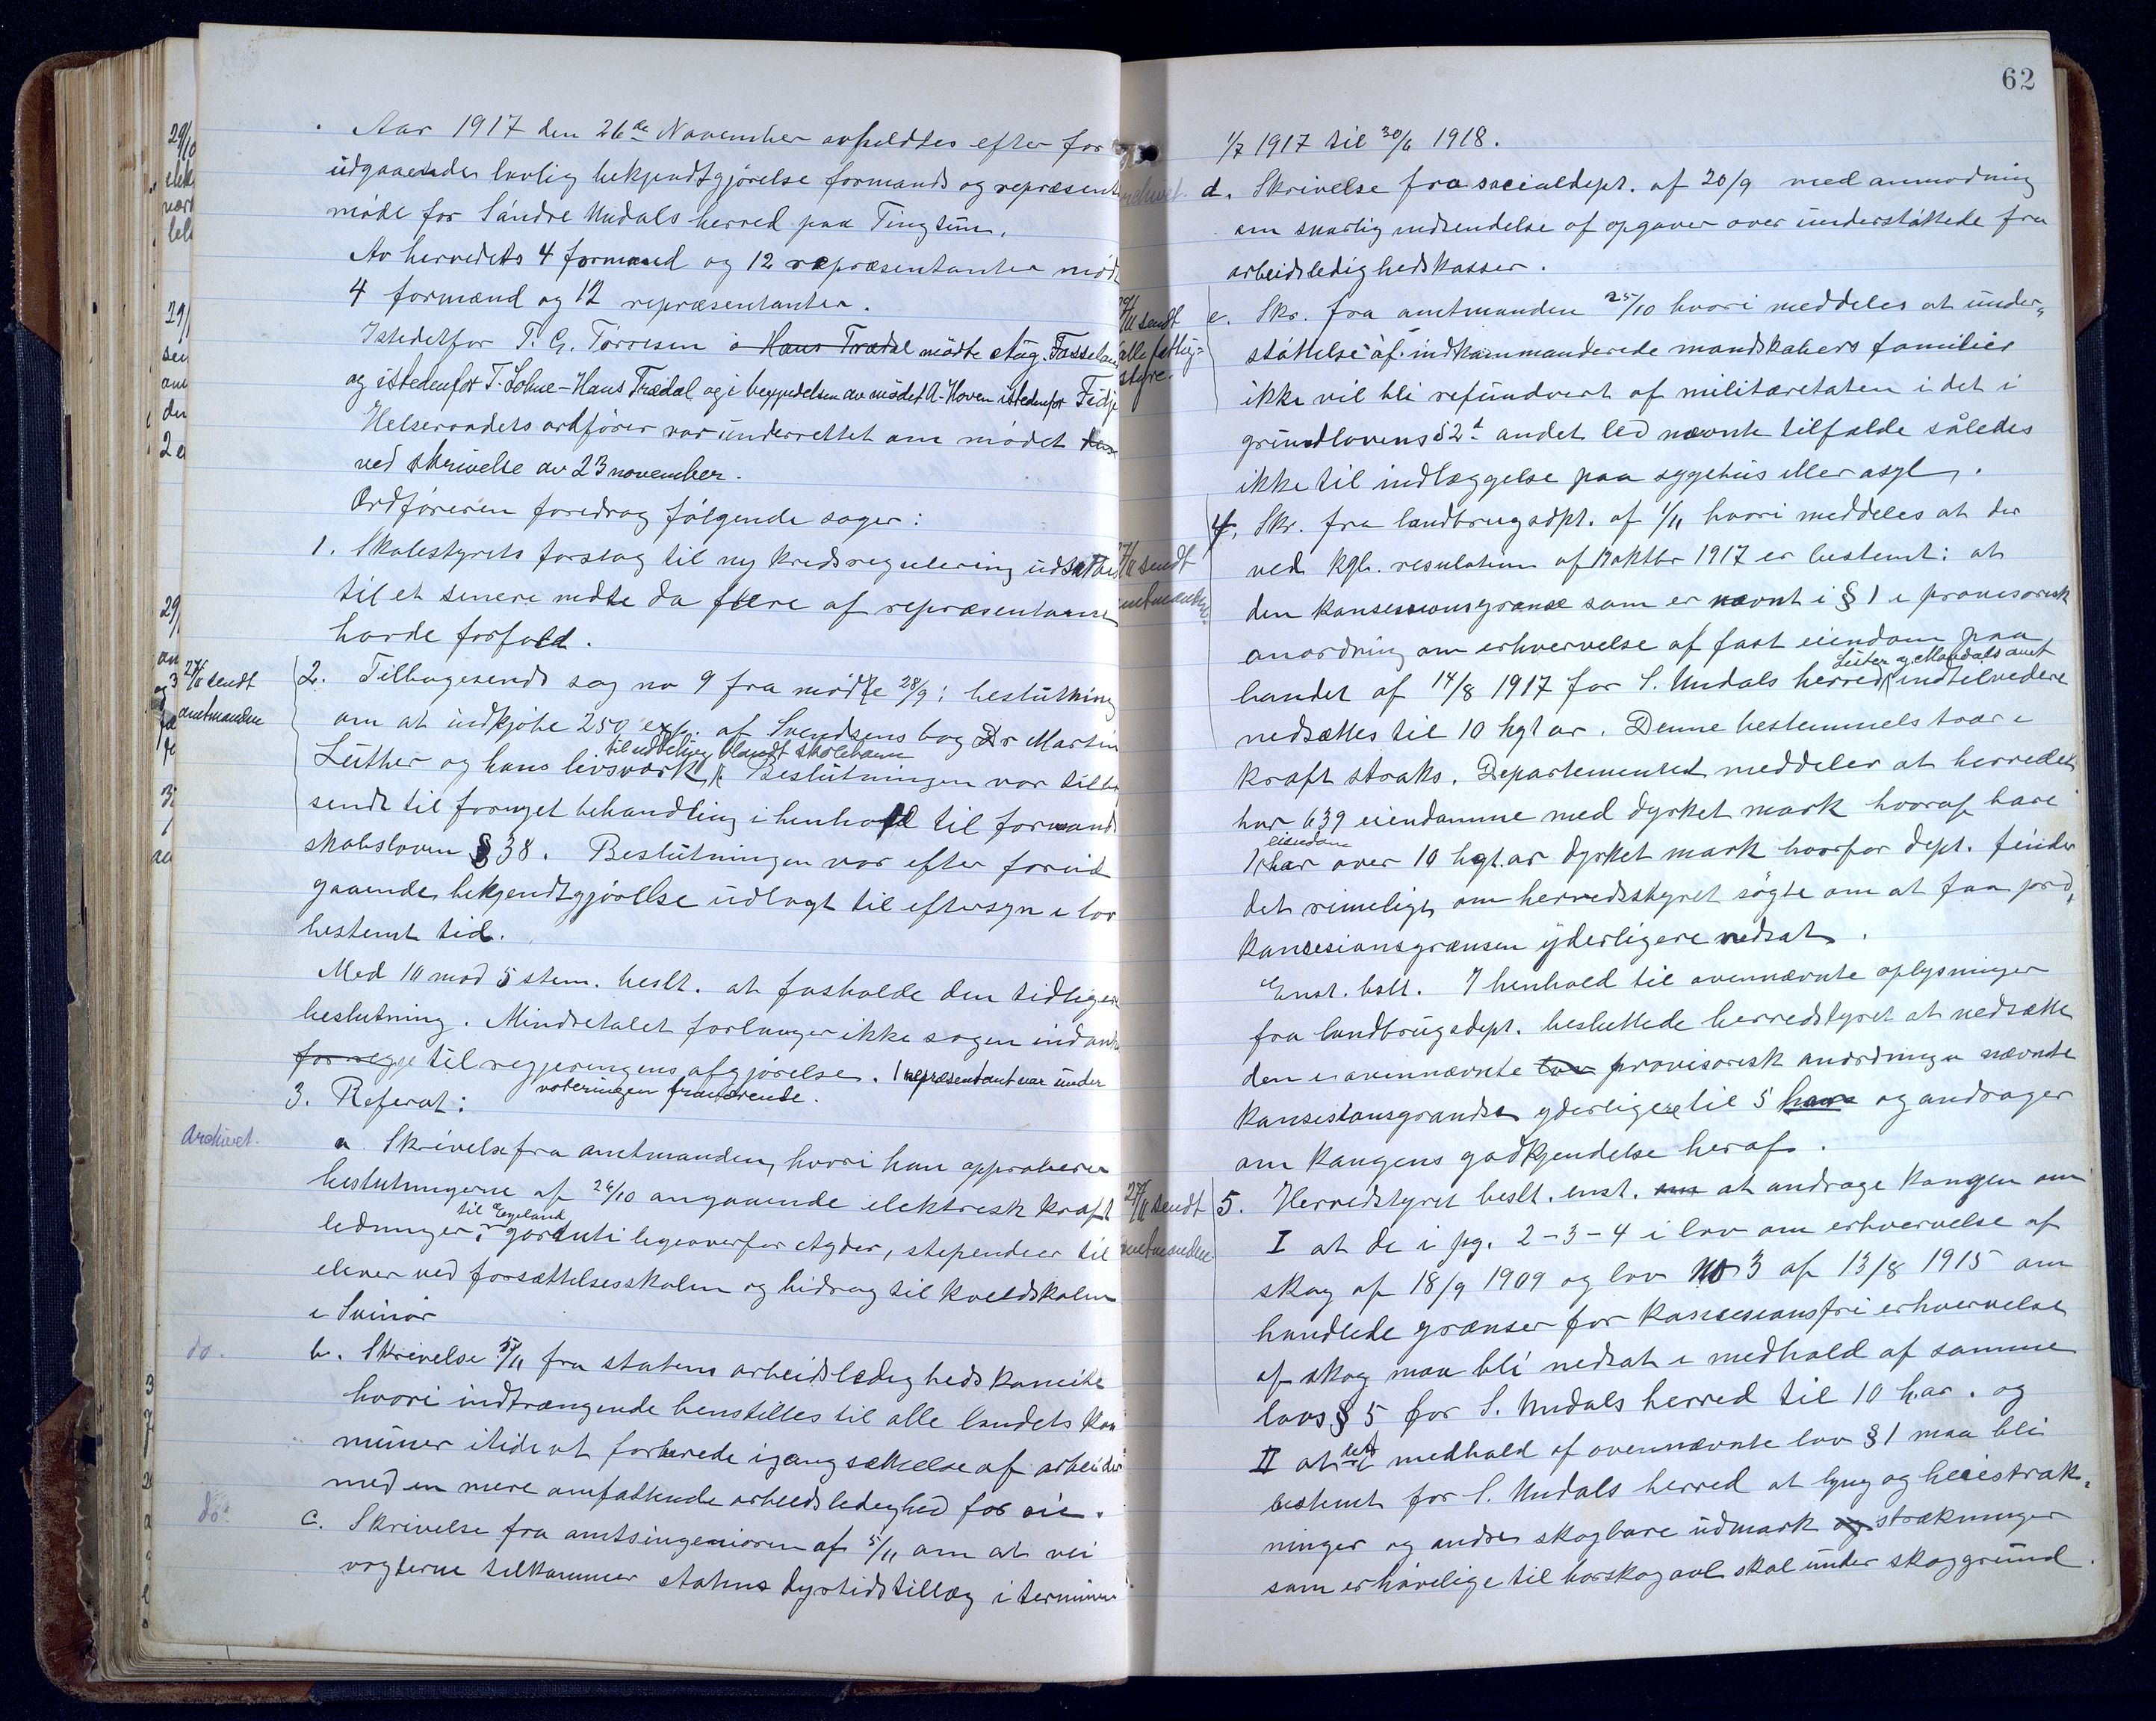 Aar 1917 den 26de November avholdtes efter for
udgaaende lovlig bekjendtgjörelse formands og repræsent
möde for Söndre Undals herred paa Tingtun.
Av herredets 4 formænd og 12 repræsentanter mödt
4 formænd og 12 repræsentanter.
Istedetfor T. G. Törresen o Hans Trædal mödte Aug. Tasselan
og istedenfor T. Lohne - Hans Trædal og i begyndelsen av mödet A. Hoven istedenfor Fidje
Helseraadets ordförer var underrettet om mödet
ved skrivelse av 23 november.
Ordföreren foredrog fölgende sager:
1. Skolestyrets forslag til ny kredsregulering udsattes
til et senere mödte da flere af repræsentanne
havde forfald.
27/11 sendt
amtmanden
2. Tilbagesendt sag no 9 fra mödte 28/9: beslutning
om at indkjöbe 250 expl. af Svendsens bog Dr Martin
Luther og hans livsværk, til uddeling blandt skolebarn
Beslutningen var tilba
sendt til fornyet behandling i henhold til formand
skabsloven § 38. Beslutningen var efter forud
gaaende bekjendtgjörelse udlagt til eftersyn i lov
bestemt tid.
Med 10 mod 5 stem. beslt. at fasholde den tidligere
beslutning. Mindretalet forlanger ikke sagen indank
for regge til regjeringens afgjörelse. 1 repræsentant var under
voteringen fraværende.
3. Referat:
Archivet.
a. Skrivelse fra amtmanden, hvori han approberer
beslutningerne af 26/10 angaaende elektrisk kraft
ledninger til Egeland, garanti ligeoverfor Agder, stipendier til
elever ved forsættelsesskolen og bidrag til kveldskolen
i Svinör
do.
b. Skrivelse 5/11 fra statens arbeidsledighedskomite
hvori indtrængende henstilles til alle landets kom
muner itide at forberede igangsættelse af arbeider
med en mere omfattende arbeidsledighed for öie.
do.
c. Skrivelse fra amtsingeniören af 5/11 om at vei
vogterne tilkommer statens dyrtidstillæg i terminen
62
1/7 1917 til 30/6 1918.
Archivet.
d. Skrivelse fra socialdept. af 20/9 med anmodning
om snarlig indsendelse af opgaver over understöttede fra
arbeidsledighedskasser.
29/11 sendt
alle fattig=
styre.
e. Skr. fra amtmanden 25/10 hvori meddeles at under-
stöttelse af indkommanderede mandskabers familier
ikke vil bli refundert af militæretaten i det i
grundlovens § 2 andet led nævnte tilfælde således
ikke til indlæggelse paa sygehus eller asyl.
27/11 sendt
amtmanden
4. Skr. fra landbrugsdpt. af 1/11 hvori meddeles at der
ved kgl. resulution af 12 oktbr 1917 er bestemt: at
den konsessionsgrænse som er nævnt i § 1 i provisorisk
anordning om erhvervelse af fast eiendom paa
landet af 14/8 1917 for S. Undals herred Lister og Mandals amt indtilvedere
nedsættes til 10 hgt ar. Denne bestemmels trær i
kraft straks. Departementet meddeler at herredet
har 639 eiendomme med dyrket mark hvoraf bare
1 eiendom har over 10 hgt. ar dyrket mark hvorfor dept. finder
det rimeligt om herredsstyret sögte om at faa prd.
konsesionsgrænsen yderligere nedsat.
Enst. beslt. I henhold til ovennævnte oplysninger
fra landbrugsdept. besluttede herredstyret at nedsætte
den i ovennævnte lov provisorisk anordning nævnte
konsesionsgrændse yderligere til 5 har og andrager
om Kongens godkjendelse heraf.
27/11 sendt
amtmanden
5. Herredstyret beslt. enst. om at andrage Kongen om
I at de i pg. 2-3-4 i lov om erhvervelse af
skog af 18/9 1909 og lov No 3 af 13/8 1915 om
handlede grænser for konsesionsfri erhvervelse
af skog maa bli nedsat i medhold af samme
lovs § 5 for S. Undals herred til 10 h.ar. og
II at det i medhold af ovennævnte lov § 1 maa bli
bestemt for S. Undals herred at lyng og heiestræk-
ninger og andre skogbare udmark og strækninger
som er hövelige til barskogavl skal under skoggrund.